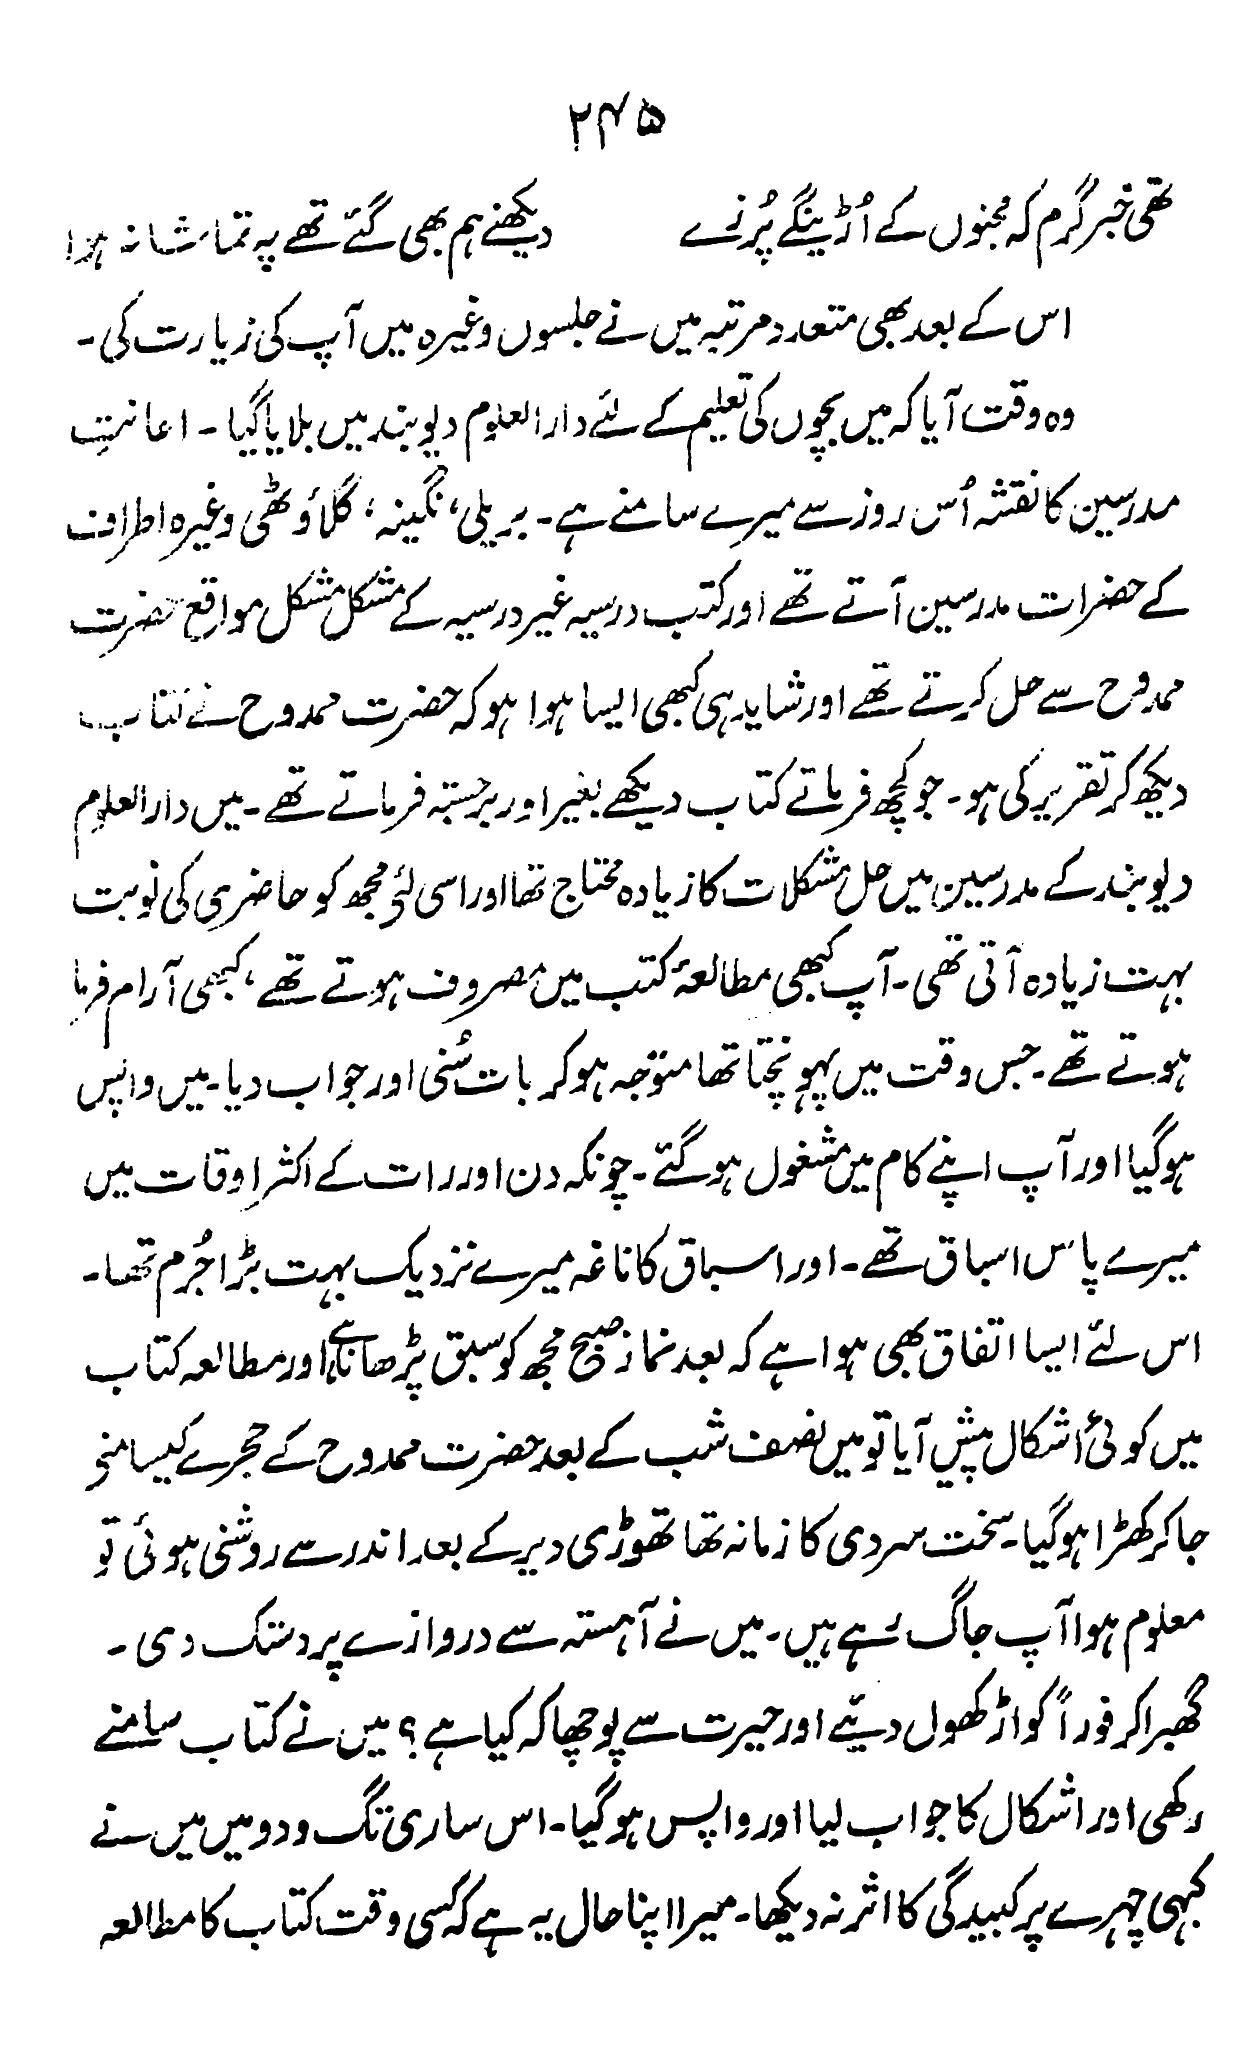 ۲۴۵
تھی خبر گرم کہ مجنوں کے اُڑینگے پُرزے دیکھنے ہم بھی گئے تھے پہ تماشا نہ ہوا
اس کے بعد بھی متعدد مرتبہ میں نے جلسوں وغیرہ میں آپ کی زیارت کی۔
وہ وقت آیا کہ میں بچوں کی تعلیم کے لئے دارالعلوم دیوبند میں بلایا گیا۔ اعانتِ
مدرسین کا نقشہ اُس روز سے میرے سامنے ہے۔ بریلی، نگینہ، گلاؤٹھی وغیرہ اطراف
کے حضرات مدرسین آتے تھے اور کتب درسیہ غیر درسیہ کے مشکل مشکل مواقع حضرت
ممدوح سے حل کرتے تھے اور شاید ہی کبھی ایسا ہوا ہو کہ حضرت ممدوح نے کتاب
دیکھ کر تقریر کی ہو۔ جو کچھ فرماتے کتاب دیکھے بغیر اور برجستہ فرماتے تھے۔ میں دارالعلوم
دیوبند کے مدرسین میں حل مشکلات کا زیادہ محتاج تھا اور اسی لئے مجھ کو حاضری کی نوبت
بہت زیادہ آتی تھی۔ آپ کبھی مطالعۂ کتب میں مصروف ہوتے تھے، کبھی آرام فرما
ہوتے تھے۔ جس وقت میں پہونچتا تھا متوجہ ہو کر بات سُنی اور جواب دیا۔ میں واپس
ہو گیا اور آپ اپنے کام میں مشغول ہو گئے۔ چونکہ دن اور رات کے اکثر اوقات میں
میرے پاس اسباق تھے۔ اور اسباق کا ناغہ میرے نزدیک بہت بڑا جُرم تھا۔
اس لئے ایسا اتفاق بھی ہوا ہے کہ بعد نماز صبح مجھ کو سبق پڑھانا ہے اور مطالعہ کتاب
میں کوئی اشکال پیش آیا تو میں نصف شب کے بعد حضرت ممدوح کے حجرے کیسامنے
جا کر کھڑا ہو گیا۔ سخت سردی کا زمانہ تھا تھوڑی دیر کے بعد اندر سے روشنی ہوئی تو
معلوم ہوا آپ جاگ رہے ہیں۔ میں نے آہستہ سے دروازے پر دستک دی۔
گھبرا کر فوراً کواڑ کھول دیئے اور حیرت سے پوچھا کہ کیا ہے؟ میں نے کتاب سامنے
رکھی اور اشکال کا جواب لیا اور واپس ہو گیا۔ اس ساری تگ و دو میں میں نے
کبھی چہرے پر کبیدگی کا اثر نہ دیکھا۔ میرا اپنا حال یہ ہے کہ کسی وقت کتاب کا مطالعہ